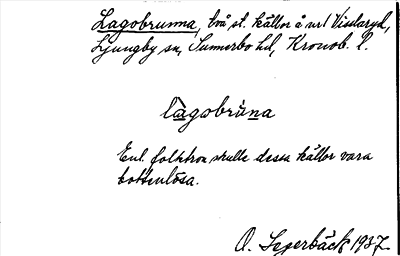 Lagobrunna, två st. källor å nr 1 Visslaryd,
Ljungby sn, Sunnerbo hd, Kronob. l.
lagobrùna
Enl. folktron skulle dessa källor vara
bottenlösa.
O. Segerbäck 1937.